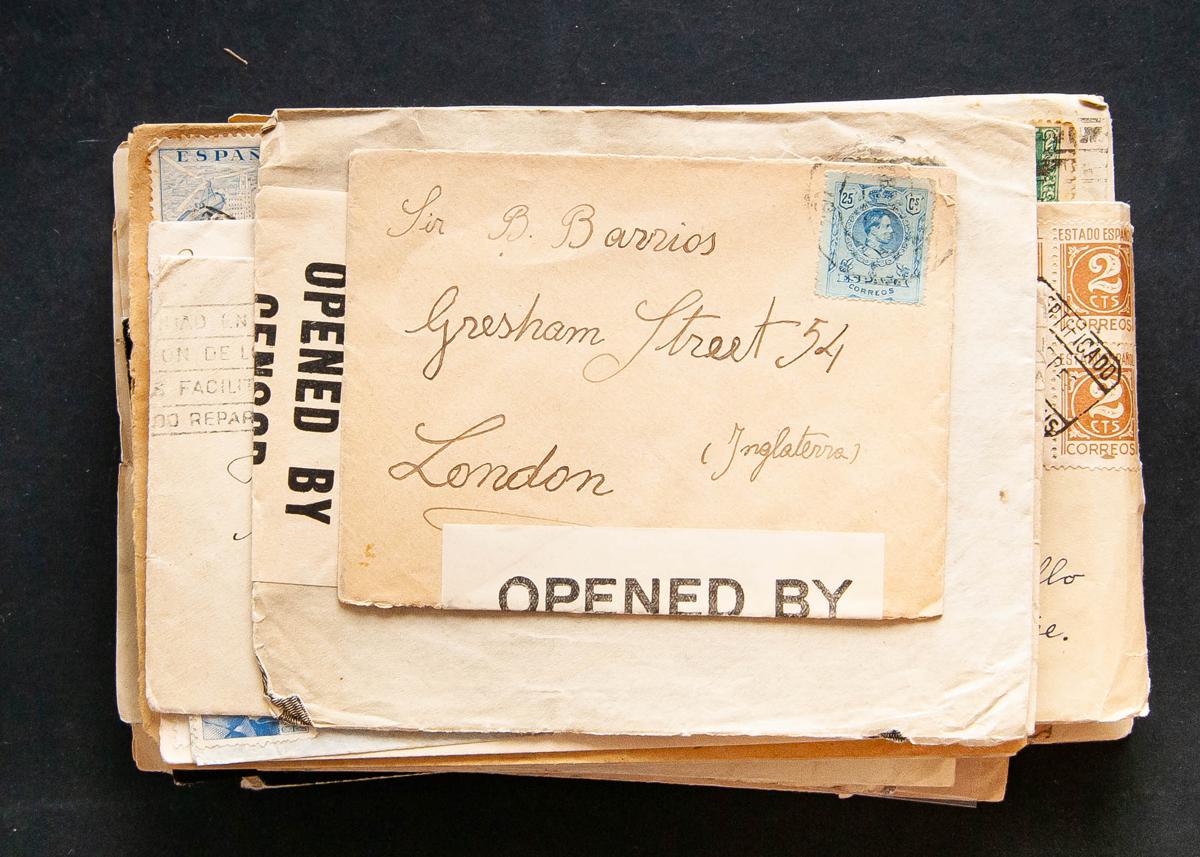 Sir B. Barrios
Gresham Street 54
London (Inglaterra)
OPENED BY
25 Cs
ESPAÑA
CORREOS
OPENED BY
CENSOR
ESPAÑ
DAD EN
ON DE L
FACILIT
DO REPAR
ESTADO ESPAÑ
2
CTS
CORREOS
2
CTS
CORREOS
llo
e.